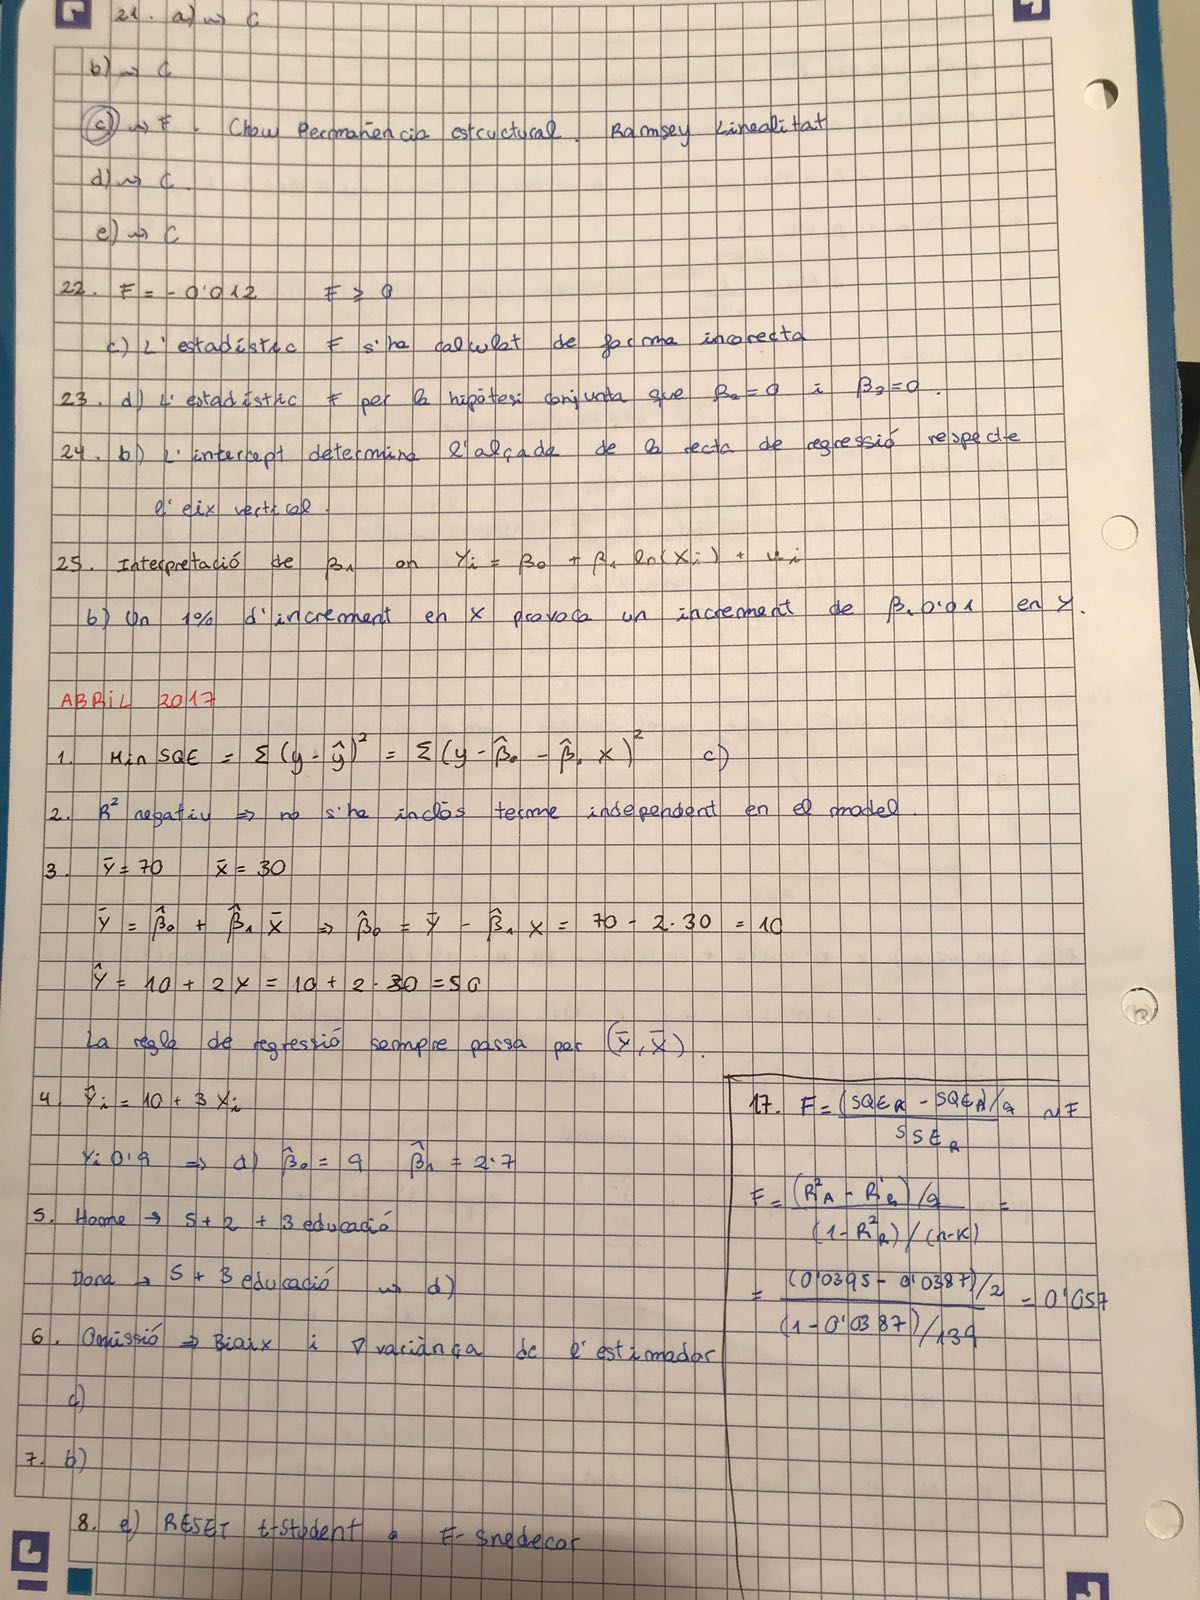 21. a) ⇝ C
b) ⇝ C
c) ⇝ F. Chow Permanència estructural. Ramsey Linealitat
d) ⇝ C.
e) ⇝ C
22. F = - 0'012 F ≥ 0
c) L'estadístic F s'ha calculat de forma incorrecta
23. d) L'estadístic F per la hipòtesi conjunta que β₂=0 i β₃=0.
24. b) L'intercept determina l'alçada de la recta de regressió respecte
l'eix vertical.
25. Interpretació de β₁ on Yi = β₀ + β₁ ln(Xi) + ui
b) Un 1% d'increment en X provoca un increment de β₁ 0'01 en Y.
ABRIL 2017
1. Min SQE = Σ (y - ŷ)² = Σ (y - β̂₀ - β̂₁ x)² c)
2. R² negatiu ⇒ no s'ha inclòs terme independent en el model.
3. Ȳ = 70 X̄ = 30
Ȳ = β̂₀ + β̂₁ X̄ ⇒ β̂₀ = Ȳ - β̂₁ X = 70 - 2·30 = 10
Ŷ = 10 + 2X = 10 + 2·30 = 50
La regle de regressió sempre passa per (Ȳ, X̄).
4. Ŷi = 10 + 3 Xi
Yi 0'9 ⇒ d) β̂₀ = 9 β̂₁ = 2.7
5. Home → 5 + 2 + 3 educació
Dona → 5 + 3 educació ⇝ d)
6. Omissió ⇒ Biaix i ∇ variància de l'estimador
c)
7. b)
8. e) RESET t-Student o F-Snedecor
17. F = (SQE_R - SQE_A)/q / SSE_R ~ F
F = (R²_A - R²_R)/q / (1 - R²_R)/(n-K) =
= (0'0395 - 0'0387)/2 / (1 - 0'0387)/139 = 0'057